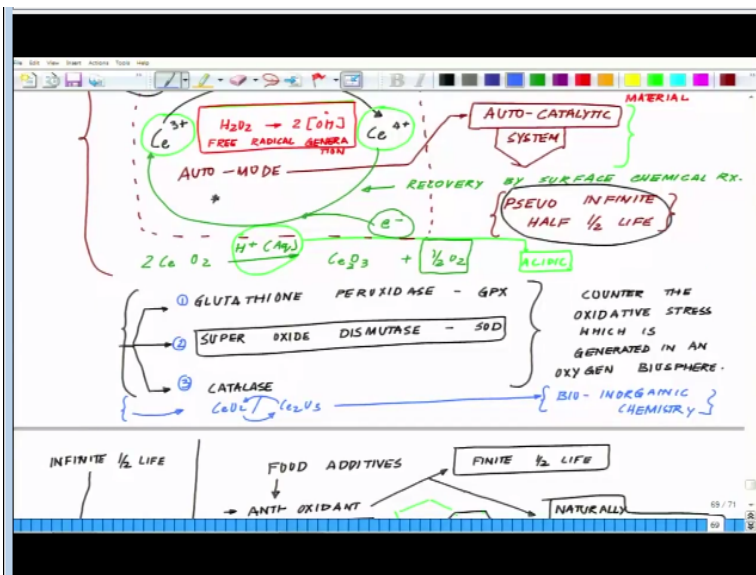 File Edit View Insert Actions Tools Help
MATERIAL
Ce3+
H2O2 → 2 [OH]
FREE RADICAL GENERA
TION
Ce4+
AUTO-CATALYTIC
SYSTEM
AUTO-MODE
RECOVERY BY SURFACE CHEMICAL RX.
PSEUO INFINITE
HALF 1/2 LIFE
e-
H+ (Aq)
2 Ce O2 → Ce2O3 + 1/2 O2
ACIDIC
① GLUTATHIONE PEROXIDASE - GPX
② SUPER OXIDE DISMUTASE - SOD
③ CATALASE
CeO2 Ce2O3
COUNTER THE
OXIDATIVE STRESS
WHICH IS
GENERATED IN AN
OXYGEN BIOSPHERE.
BIO-INORGANIC
CHEMISTRY
INFINITE 1/2 LIFE
FOOD ADDITIVES
FINITE 1/2 LIFE
→ ANTI OXIDANT
NATURALLY
69 / 71
69